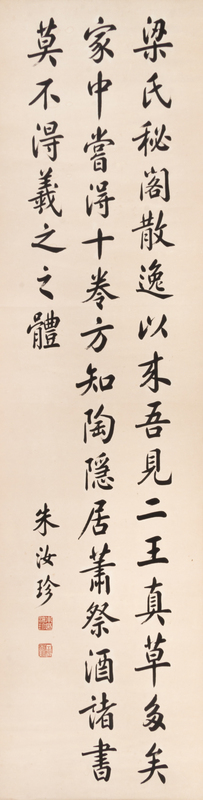 梁氏秘閣散逸以来吾見二王真草多矣
家中嘗得十卷方知陶隠居蕭祭酒諸書
莫不得羲之之體
朱汝珍